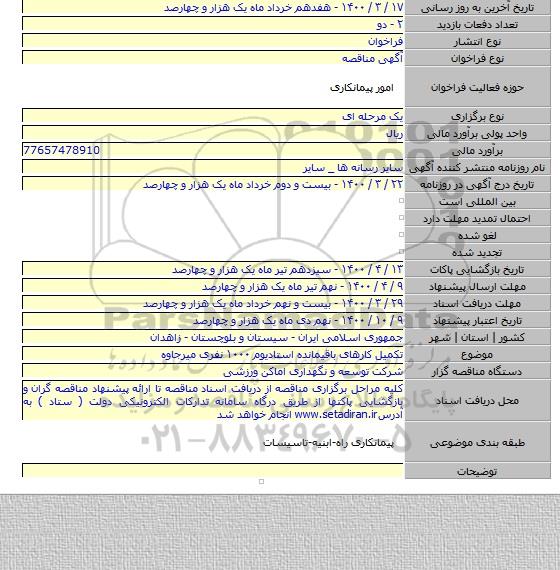 تاریخ آخرین به روز رسانی ۱۷ / ۳ / ۱۴۰۰ - هفدهم خرداد ماه یک هزار و چهارصد
تعداد دفعات بازدید ۲ - دو
نوع انتشار فراخوان
نوع فراخوان آگهی مناقصه
حوزه فعالیت فراخوان امور پیمانکاری
نوع برگزاری یک مرحله ای
واحد پولی برآورد مالی ریال
برآورد مالی 77657478910
نام روزنامه منتشر کننده آگهی سایر رسانه ها _ سایر
تاریخ درج آگهی در روزنامه ۲۲ / ۳ / ۱۴۰۰ - بیست و دوم خرداد ماه یک هزار و چهارصد
بین المللی است
احتمال تمدید مهلت دارد
لغو شده
تجدید شده
تاریخ بازگشایی پاکات ۱۳ / ۴ / ۱۴۰۰ - سیزدهم تیر ماه یک هزار و چهارصد
مهلت ارسال پیشنهاد ۹ / ۴ / ۱۴۰۰ - نهم تیر ماه یک هزار و چهارصد
مهلت دریافت اسناد ۲۹ / ۳ / ۱۴۰۰ - بیست و نهم خرداد ماه یک هزار و چهارصد
تاریخ اعتبار پیشنهاد ۹ / ۱۰ / ۱۴۰۰ - نهم دی ماه یک هزار و چهارصد
کشور | استان | شهر جمهوری اسلامی ایران - سیستان و بلوچستان - زاهدان
موضوع تکمیل کارهای باقیمانده استادیوم ۱۰۰۰ نفری میرجاوه
دستگاه مناقصه گزار شرکت توسعه و نگهداری اماکن ورزشی
محل دریافت اسناد کلیه مراحل برگزاری مناقصه از دریافت اسناد مناقصه تا ارائه پیشنهاد مناقصه گران و
بازگشایی پاکتها از طریق درگاه سامانه تدارکات الکترونیکی دولت ( ستاد ) به
آدرس www.setadiran.ir انجام خواهد شد
طبقه بندی موضوعی پیمانکاری راه-ابنیه-تاسیسات
توضیحات
ParsNamadData
۰۲۱-۸۸۳۴۹۶۷۰-۵